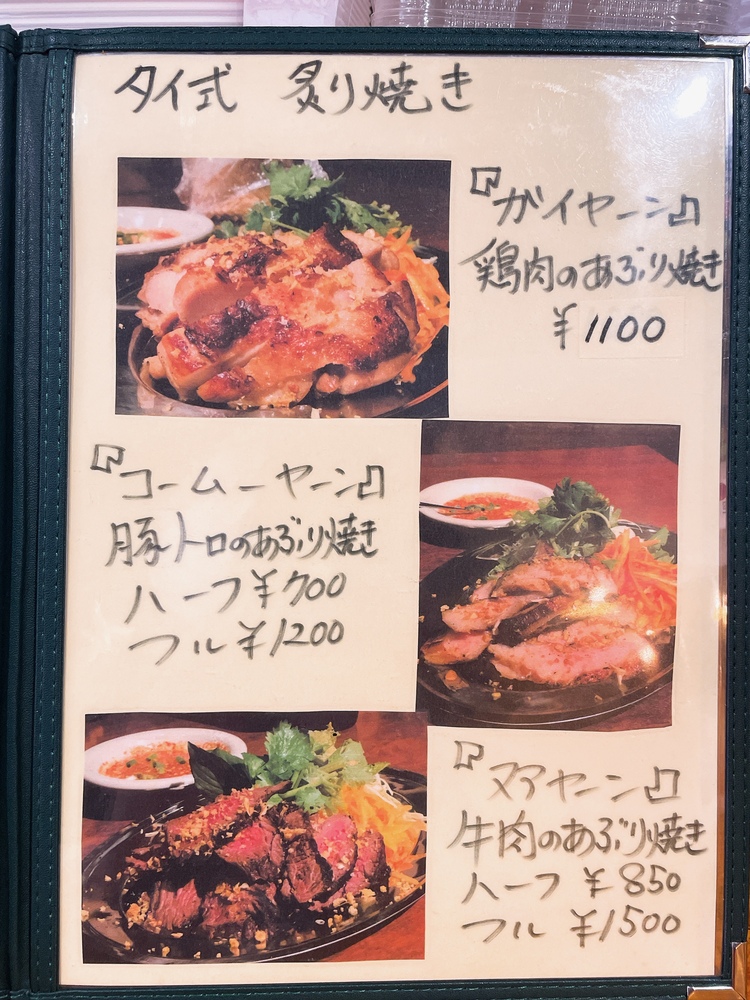 タイ式 炙り焼き
『ガイヤーン』
鶏肉のあぶり焼き
¥1100
『コームーヤーン』
豚トロのあぶり焼き
ハーフ¥700
フル¥1200
『ヌアヤーン』
牛肉のあぶり焼き
ハーフ ¥850
フル ¥1500